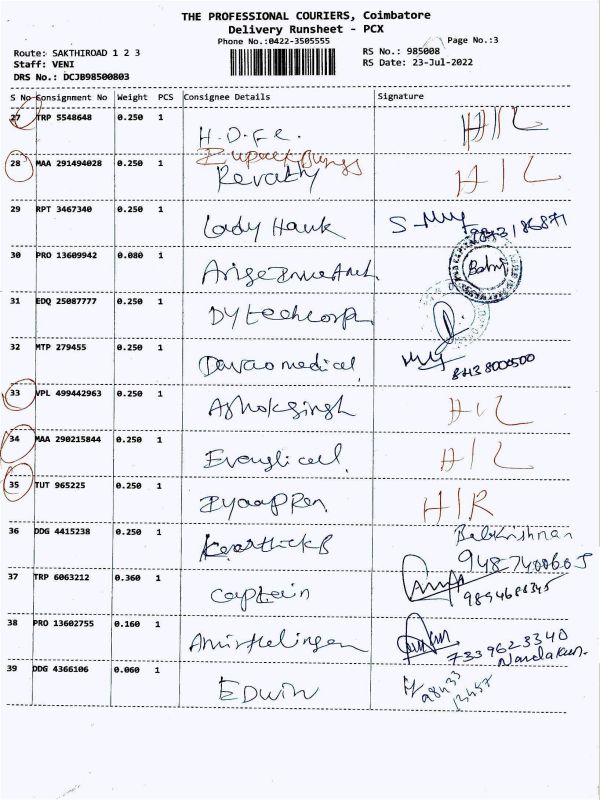 THE PROFESSIONAL COURIERS, Coimbatore
Delivery Runsheet - PCX
Phone No.:0422-3505555
Page No.:3
Route: SAKTHIROAD 1 2 3
RS No.: 985008
Staff: VENI
RS Date: 23-Jul-2022
DRS No.: DCJB98500803
S No Consignment No Weight PCS Consignee Details Signature
27 TRP 5548648 0.250 1 H.D.F.C. H/L
28 MAA 291494028 0.250 1 Revathy H/L
29 RPT 3467340 0.250 1 Lady Hawk
30 PRO 13609942 0.080 1
31 EDQ 25087777 0.250 1 Dytechcorp
32 MTP 279455 0.250 1 Davao medical 8438000500
33 VPL 499442963 0.250 1 Ashok singh H/L
34 MAA 290215844 0.250 1 H/L
35 TUT 965225 0.250 1 Iyaappan H/R
36 DDG 4415238 0.250 1 Balakrishnan
9487400605
37 TRP 6063212 0.360 1 Captain
38 PRO 13602755 0.160 1 Amirthalingam 7339623340
39 DDG 4366106 0.060 1 Edwin